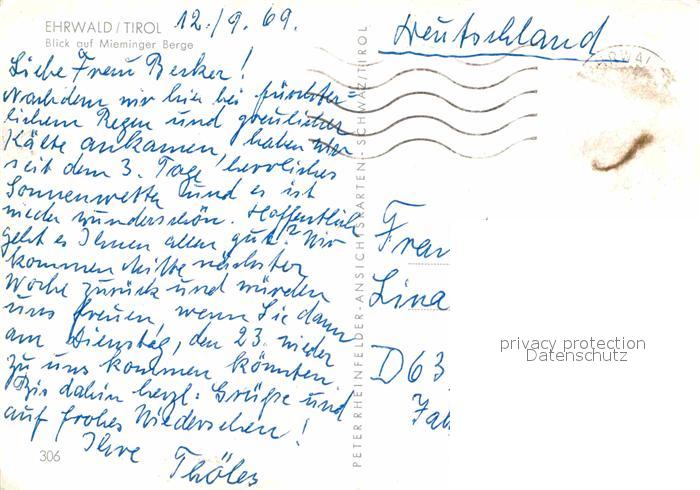 EHRWALD/TIROL
Blick auf Mieminger Berge
12./9. 69.
Liebe Frau Becker!
Nachdem wir hier bei fürchter=
lichem Regen und greulicher
Kälte ankamen, haben wir
seit dem 3. Tage herrliches
Sonnenwetter und es ist
wieder wunderschön. Hoffentlich
geht es Ihnen allen gut? Wir
kommen Mitte nächster
Woche zurück und würden
uns freuen wenn Sie dann
am Dienstag, den 23. wieder
zu uns kommen könnten.
Bis dahin herzl. Grüße und
auf frohes Wiedersehen!
Ihre
Thöles
306
PETER RHEINFELDER-ANSICHTSKARTEN-SCHWAZ/TIROL
Deutschland
Frau
Lina
D 63
privacy protection
Datenschutz